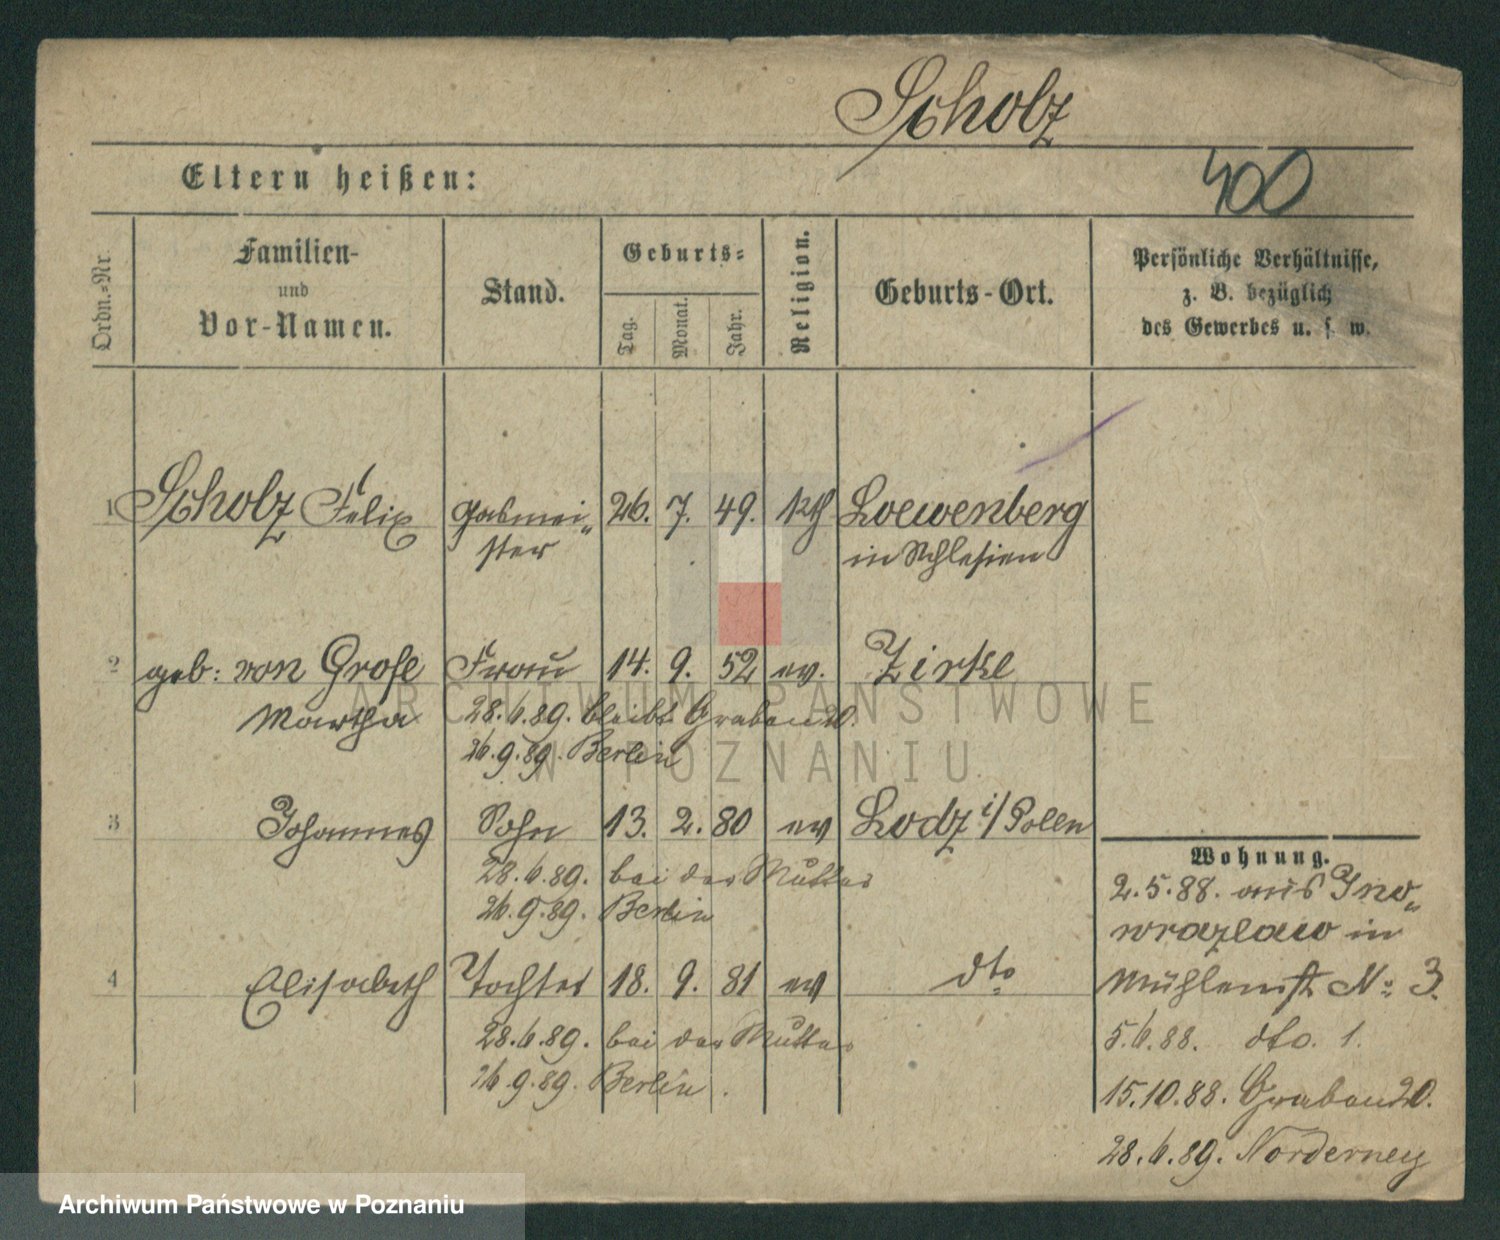 Scholz
Eltern heißen:
400
Ordn.-Nr.
Familien-
und
Vor-Namen.
Stand.
Geburts-
Tag.
Monat.
Jahr.
Religion.
Geburts-Ort.
Persönliche Verhältnisse,
z. B. bezüglich
des Gewerbes u. s. w.
1 Scholz Felix Gasmei- 26. 7. 49. kth Loewenberg
ster in Schlesien
2 geb: von Grose Frau 14. 9. 52 ev. Zirke
Martha 28.6.89. bleibt Graben 20.
26.9.89. Berlin
3 Johannes Sohn 13. 2. 80 ev Lodz i/Polen
28.6.89. bei der Mutter
26.9.89. Berlin
4 Elisabeth Tochter 18. 9. 81 ev dto
28.6.89. bei der Mutter
26.9.89. Berlin.
Wohnung.
2.5.88. aus Ino-
wrazlaw in
Mühlenstr No: 3.
5.6.88. dto. 1.
15.10.88. Graben 20.
28.6.89. Norderney
ARCHIWUM PAŃSTWOWE
W POZNANIU
Archiwum Państwowe w Poznaniu